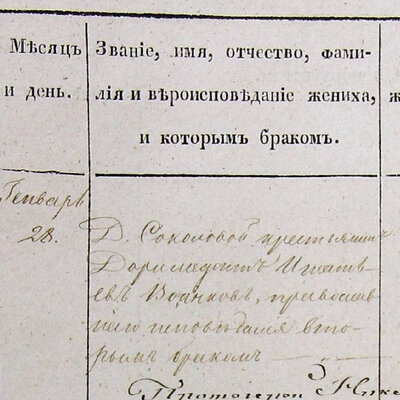 Мѣсяцъ
и день.
Званіе, имя, отчество, фами-
лія и вѣроисповѣданіе жениха,
и которымъ бракомъ.
Генваря
28.
Д. Соколовой крестьянинъ
Доримедонтъ Игнать-
евъ Воинковъ, православ-
наго исповѣданія вто-
рымъ бракомъ
Протоіерей Нико